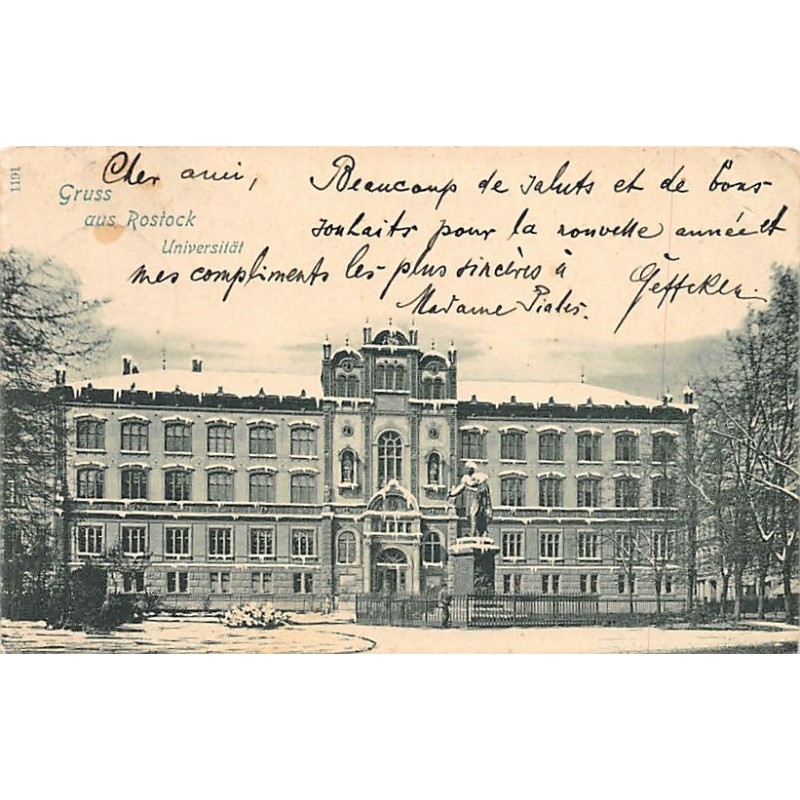 1191
Gruss
aus Rostock
Universität
Cher ami,
Beaucoup de saluts et de bons
souhaits pour la nouvelle année et
mes compliments les plus sincères à
Madame
Geffcken.